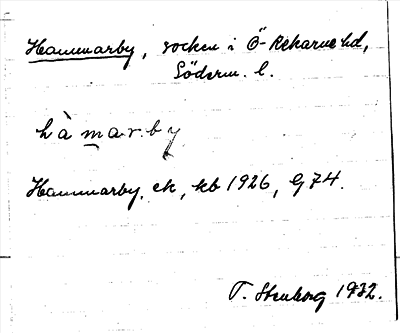 Hammarby, socken i Ö-Rekarne hd,
Söderm. l.
hàmarby
Hammarby, ek, kb 1926, G74.
T. Stenborg 1932.